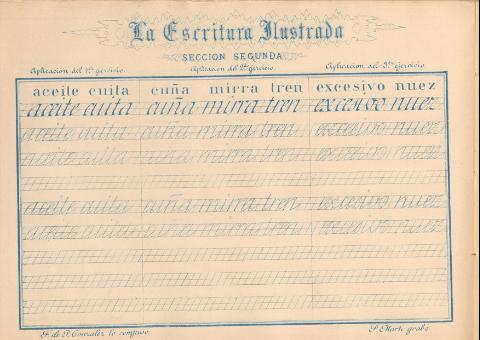 La Escritura Ilustrada
SECCION SEGUNDA
Aplicacion del 1er. ejercicio. Aplicacion del 2º. ejercicio. Aplicacion del 3er. ejercicio.
aceite cuita cuña mirra tren excesivo nuez
aceite cuita cuña mirra tren excesivo nuez
aceite cuita cuña mirra tren excesivo nuez
aceite cuita cuña mirra tren excesivo nuez
aceite cuita cuña mirra tren excesivo nuez
aceite cuita cuña mirra tren excesivo nuez
F. de P. Gonzalez lo compuso. P. Marti grabó.